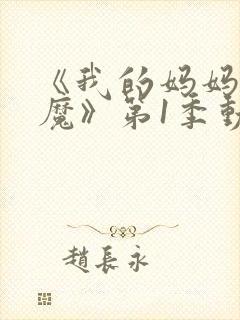 《我的妈妈
魔》第1季動
趙長永